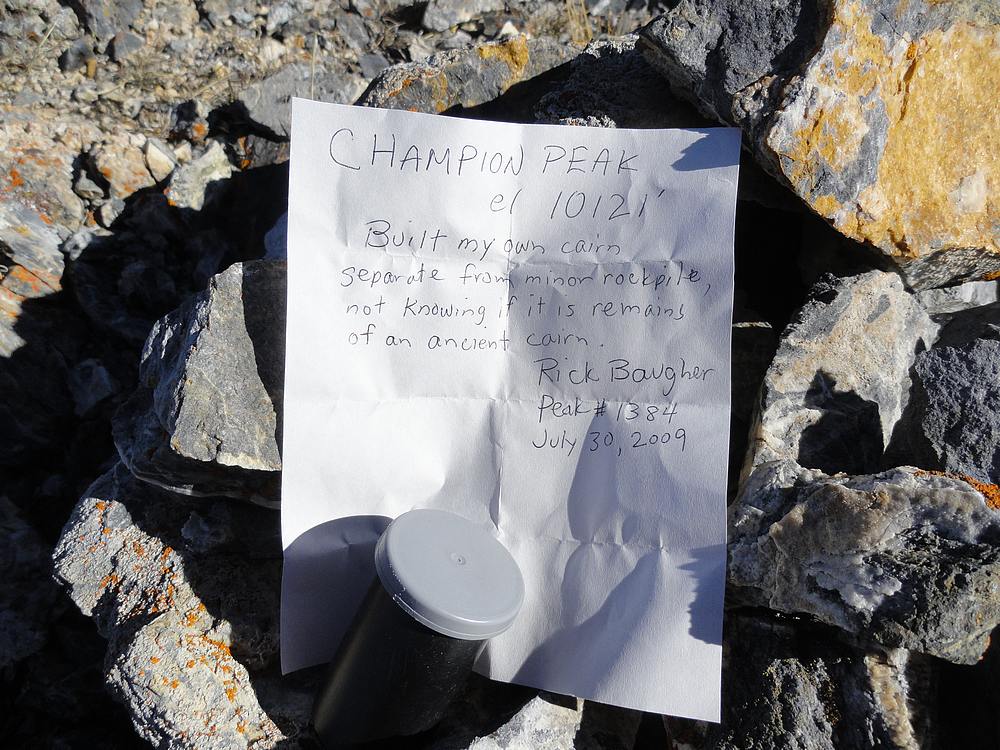 CHAMPION PEAK
el 10121'
Built my own cairn
separate from minor rockpile,
not knowing if it is remains
of an ancient cairn.
Rick Baugher
Peak # 1384
July 30, 2009